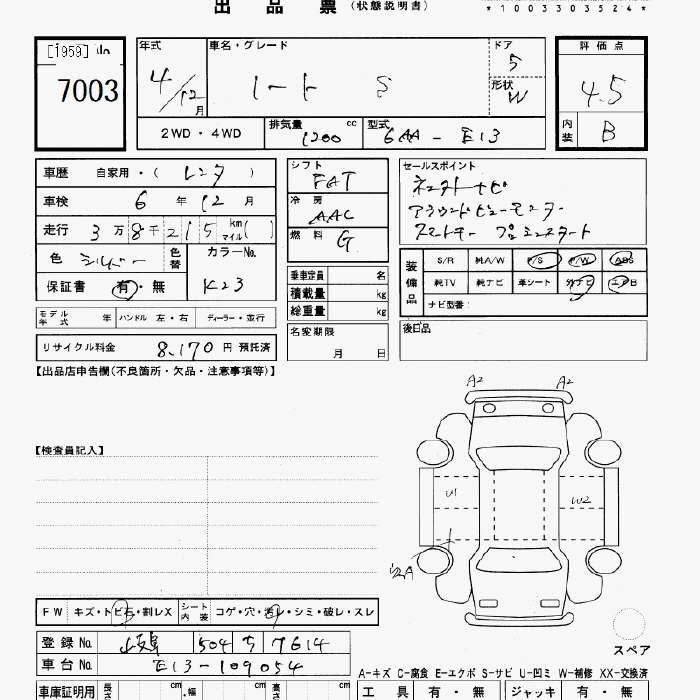 出品票(状態説明書)
*1003303524*
[1959]
7003
年式
車名・グレード
ドア
評価点
4/12月
ノート S
5
形状
W
4.5
2WD・4WD
排気量 cc
1200
型式
6AA-E13
内装
B
車歴 自家用・( レンタ )
車検 6 年 12 月
走行 3万8千215 km マイル( )
色 シルバー
色替
カラーNo.
K23
保証書 有・無
シフト
FAT
冷房
AAC
燃料
G
セールスポイント
アラウンドビューモニター
装備品
S/R 純A/W P/S P/W ABS
純TV 純ナビ 革シート 外ナビ エアB
ナビ型番:
乗車定員 名
積載量 kg
総重量 kg
名変期限
月 日
後日品
モデル年式 年
ハンドル 左・右
ディーラー・並行
リサイクル料金 8,170 円 預託済
【出品店申告欄(不良箇所・欠品・注意事項等)】
【検査員記入】
A2 A2
U1 W2
FW キズ・トビ石・割レX
シート内装 コゲ・穴・汚レ・シミ・破レ・スレ
登録No. 岐阜 504 ち 7614
車台No. E13-109054
スペア
A-キズ C-腐食 E-エクボ S-サビ U-凹ミ W-補修 XX-交換済
車庫証明用 長さ cm ・幅 cm 高さ cm
工具 有・無
ジャッキ 有・無